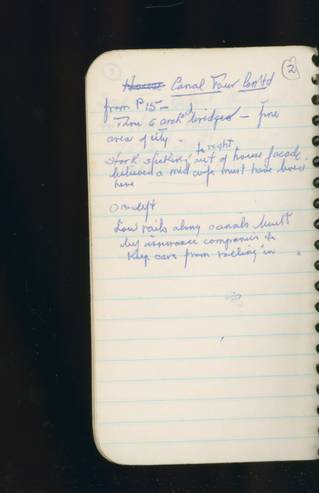 House Canal Tour Cont'd
②
from P 15 —
Thru 6 arched bridges — fine
area of city —
to right
Stork sticking out of house facade
believed a midwife must have lived
here
On left
Low rails along canals built
by insurance companies to
keep cars from rolling in.